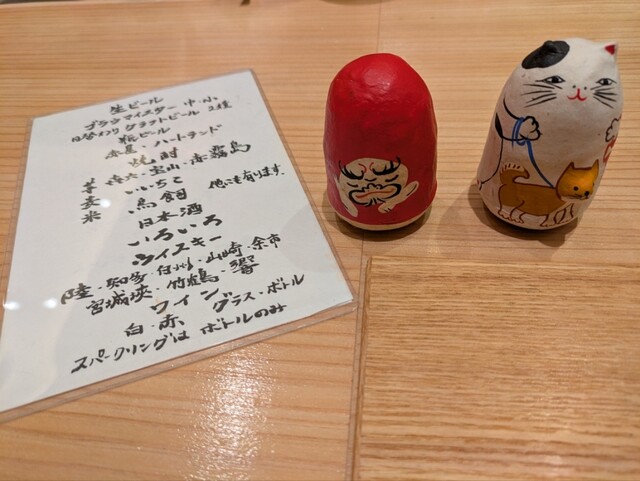 生ビール
ブラウマイスター 中・小
日替わりクラフトビール 2種
瓶ビール
赤星・ハートランド
焼酎
芋 佐大・宝山・赤霧島
麦 いいちこ
米 鳥飼 他にも有ります。
日本酒
いろいろ
ウイスキー
陸・知多・白州・山崎・余市
宮城峡・竹鶴・響
ワイン
白・赤 グラス・ボトル
スパークリングは ボトルのみ